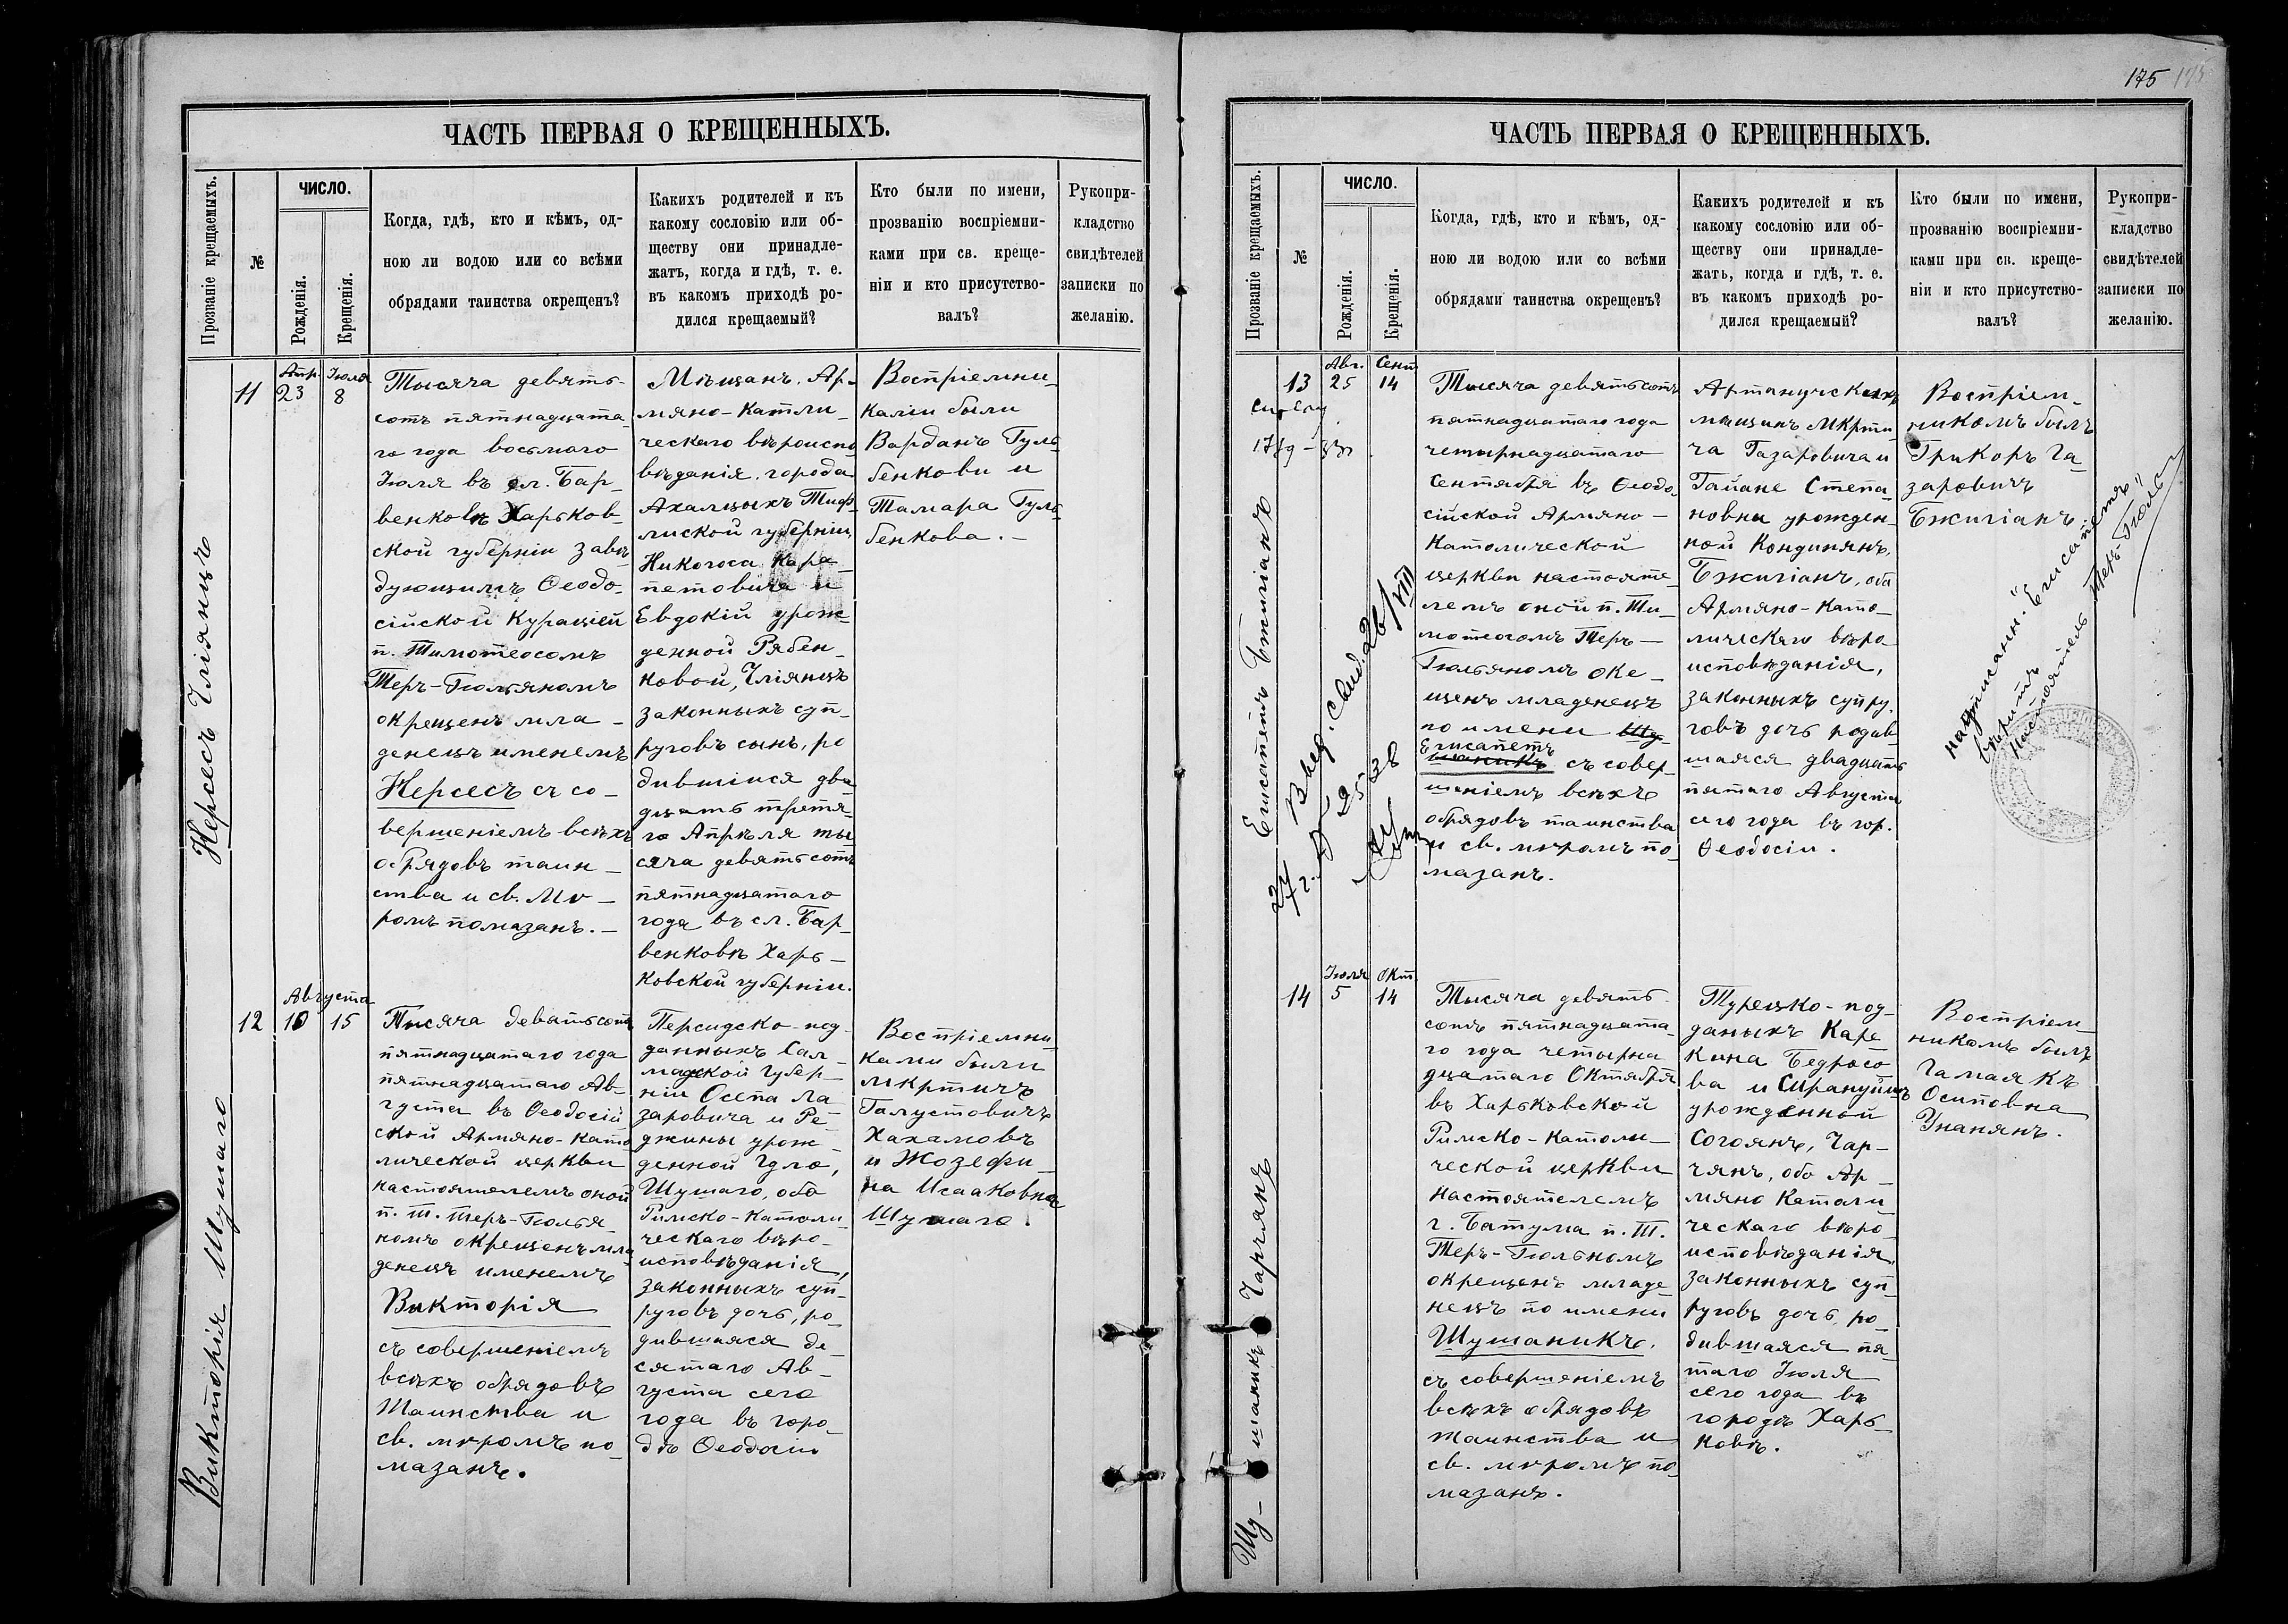 175 175
ЧАСТЬ ПЕРВАЯ О КРЕЩЕННЫХЪ.
Прозваніе крещаемыхъ.
№
ЧИСЛО.
Рожденія.
Крещенія.
Когда, гдѣ, кто и кѣмъ, од-
ною ли водою или со всѣми
обрядами таинства окрещенъ?
Какихъ родителей и къ
какому сословію или об-
ществу они принадле-
жатъ, когда и гдѣ, т. е.
въ какомъ приходѣ ро-
дился крещаемый?
Кто были по имени,
прозванію воспріемни-
ками при св. креще-
ніи и кто присутство-
валъ?
Рукопри-
кладство
свидѣтелей
записки по
желанію.
Нерсесъ Чліянцъ
11
Апр.
23
Іюля
8
Тысяча девять-
сотъ пятнадцата-
го года восьмаго
Іюля въ сл. Бар-
венковѣ Харьков-
ской губерніи завѣ
дующимъ Ѳеодо-
сійской Курацiей
п. Тимотеосомъ
Теръ-Гюльяномъ
окрещенъ мла-
денецъ именемъ
Нерсесъ съ со-
вершеніемъ всѣхъ
обрядовъ таин-
ства и св. Мѵ-
ромъ помазанъ.-
Мѣщанъ, Ар-
мяно-Катли-
ческаго вѣроиспо
вѣданія, города
Ахалцыхъ Тиф-
лиской губерніи
Никогоса Кара-
петовича и
Евдокiй урож-
денной Рябен-
ковой, Чліянцъ
законныхъ суп-
руговъ сынъ, ро
дившiйся два
дцать третя-
го Апрѣля ты
сяча девятьсотъ
пятнадцатаго
года въ сл. Бар-
венковѣ Харь-
ковской губерніи.
Воспріемни-
ками были
Варданъ Гуль-
бенковъ и
Тамара Гуль-
бенкова.-
Викторія Шушаго
12
Августа
10
15
Тысяча девятьсотъ
пятнадцатаго года
пятнадцатаго Ав-
густа въ Ѳеодосій
ской Армяно-Като
лической церкви
настоятелемъ оной
п. Т. Теръ-Гюлья-
номъ окрещенъ мла
денецъ именемъ
Викторія
съ совершеніемъ
всѣхъ обрядовъ
Таинства и
св. мѵромъ по-
мазанъ.
Персидско-под-
данныхъ Сал-
маской Губер-
ніи Осепа Ла
заровича и Ре-
джины урож-
денной Гуло,
Шушаго, оба
Римско-Католи-
ческаго вѣро-
исповѣданія,
законныхъ суп-
руговъ дочь, ро-
дившаяся де-
сятаго Ав-
густа сего
года въ горо-
дѣ Ѳеодосіи
Воспріемни
ками были
Мкртичъ
Галустовичъ
Хахамовъ
и Жозефи-
на Исааковна
Шушаго.
ЧАСТЬ ПЕРВАЯ О КРЕЩЕННЫХЪ.
Прозваніе крещаемыхъ.
№
ЧИСЛО.
Рожденія.
Крещенія.
Когда, гдѣ, кто и кѣмъ, од-
ною ли водою или со всѣми
обрядами таинства окрещенъ?
Какихъ родителей и къ
какому сословію или об-
ществу они принадле-
жатъ, когда и гдѣ, т. е.
въ какомъ приходѣ ро-
дился крещаемый?
Кто были по имени,
прозванію воспріемни-
ками при св. креще-
ніи и кто присутство-
валъ?
Рукопри-
кладство
свидѣтелей
записки по
желанію.
Егисапетъ Бжигіанъ
13
Авг.
25
Сент
14
Выд. свид. 26/VIII
Тысяча девятьсотъ
пятнадцатаго года
четырнадцатаго
Сентября въ Ѳеодо-
сійской Армяно-
Католической
церкви настояте-
лемъ оной п. Ти-
мотеосомъ Теръ-
Гюльяномъ окре-
щенъ младенецъ
по имени Шу-
Егисапетъ
шаникъ съ совер-
шеніемъ всѣхъ
обрядовъ таинства
и св. мѵромъ по-
мазанъ.
Артануйскихъ
мѣщанъ Мкрти-
ча Газаровича и
Гайане Степа-
новны урожден-
ной Кондинянъ,
Бжигіанъ, оба
Армяно-Като-
лическаго вѣро-
исповѣданія,
законныхъ супру-
говъ дочь родив-
шаяся двадцать
пятаго Августа
сего года въ гор.
Ѳеодосіи.
Воспріем-
никомъ былъ
Грикоръ Га-
заровичъ
Бжигіанъ
надписанн. "Егисапетъ"
вѣрить
Настоятель Теръ-Гюльян
Шу-шаникъ Чарчянъ
14
Іюля
5
Окт.
14
Тысяча девять-
сотъ пятнадцата-
го года четырна
дцатаго Октября
въ Харьковской
Римско-Католи-
ческой церкви
Настоятелемъ
г. Батума п. Т.
Теръ-Гюльномъ
окрещенъ младе
нецъ по имени
Шушаникъ.
съ совершеніемъ
всѣхъ обрядовъ
таинства и
св. мѵромъ по-
мазанъ.
Турецко-под-
даныхъ Каре
кина Бедросо-
ва и Сирануйшъ
урожденной
Согоянъ, Чар-
чянъ, оба Ар-
мяно Католи
ческаго вѣро-
исповѣданія,
законныхъ суп-
руговъ дочь, ро-
дившаяся пя-
таго Іюля
сего года въ
городѣ Харь-
ковѣ.
Воспріем-
никомъ былъ
Гамаякъ
Осиповна
Унанянъ.